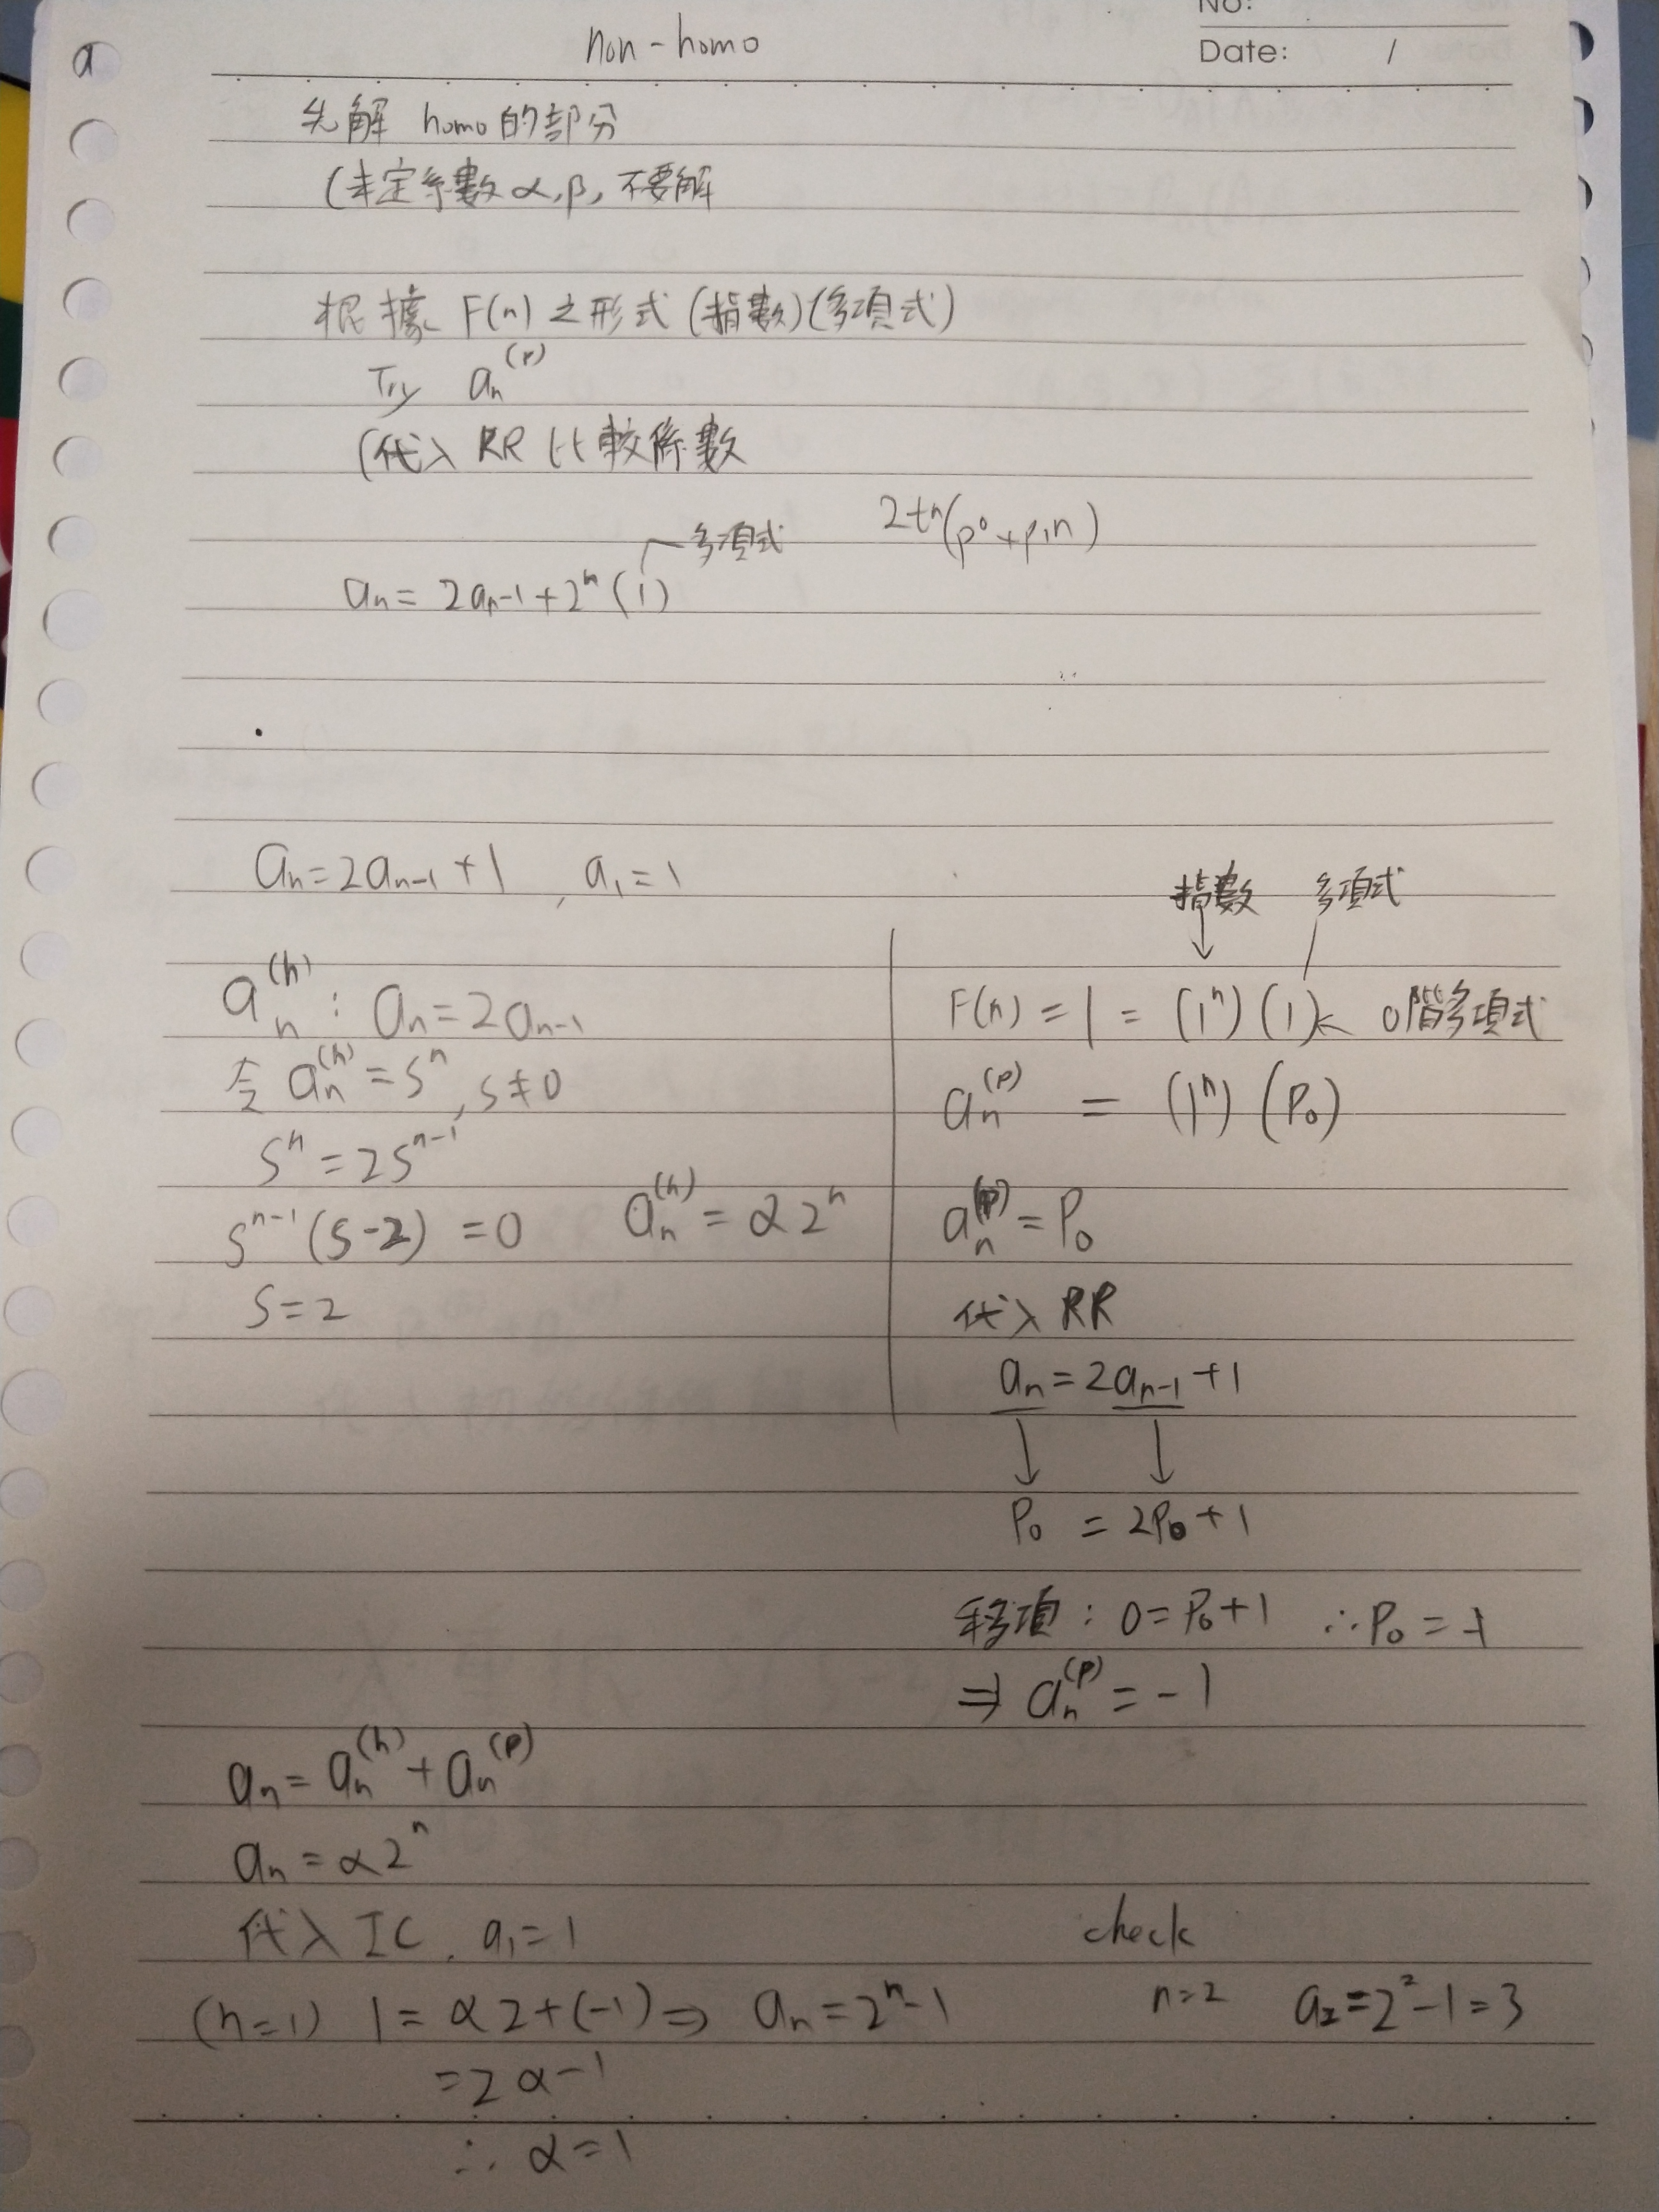 No:
Date: /
a
non-homo
先解 homo的部分
(未定系數 α,β, 不要解
根據 F(n) 之形式 (指數)(多項式)
Try aₙ⁽ᵖ⁾
(代入 RR 比較係數
多項式 2tⁿ(p⁰+p₁n)
aₙ = 2aₙ₋₁+2ⁿ(1)
aₙ=2aₙ₋₁+1 , a₁=1
指數 多項式
aₙ⁽ʰ⁾ : aₙ=2aₙ₋₁
令 aₙ⁽ʰ⁾=sⁿ, s≠0
sⁿ=2sⁿ⁻¹
sⁿ⁻¹(s-2) =0 aₙ⁽ʰ⁾ = α2ⁿ
s=2
F(n) = 1 = (1ⁿ)(1)← 0階多項式
aₙ⁽ᵖ⁾ = (1ⁿ)(P₀)
aₙ⁽ᵖ⁾=P₀
代入 RR
aₙ=2aₙ₋₁+1
↓ ↓
P₀ = 2P₀+1
移項 : 0=P₀+1 ∴P₀=-1
⇒ aₙ⁽ᵖ⁾=-1
aₙ=aₙ⁽ʰ⁾+aₙ⁽ᵖ⁾
aₙ=α2ⁿ
代入 IC, a₁=1
(n=1) 1= α2+(-1)⇒ aₙ=2ⁿ-1
=2α-1
∴ α=1
check
n=2 a₂=2²-1=3